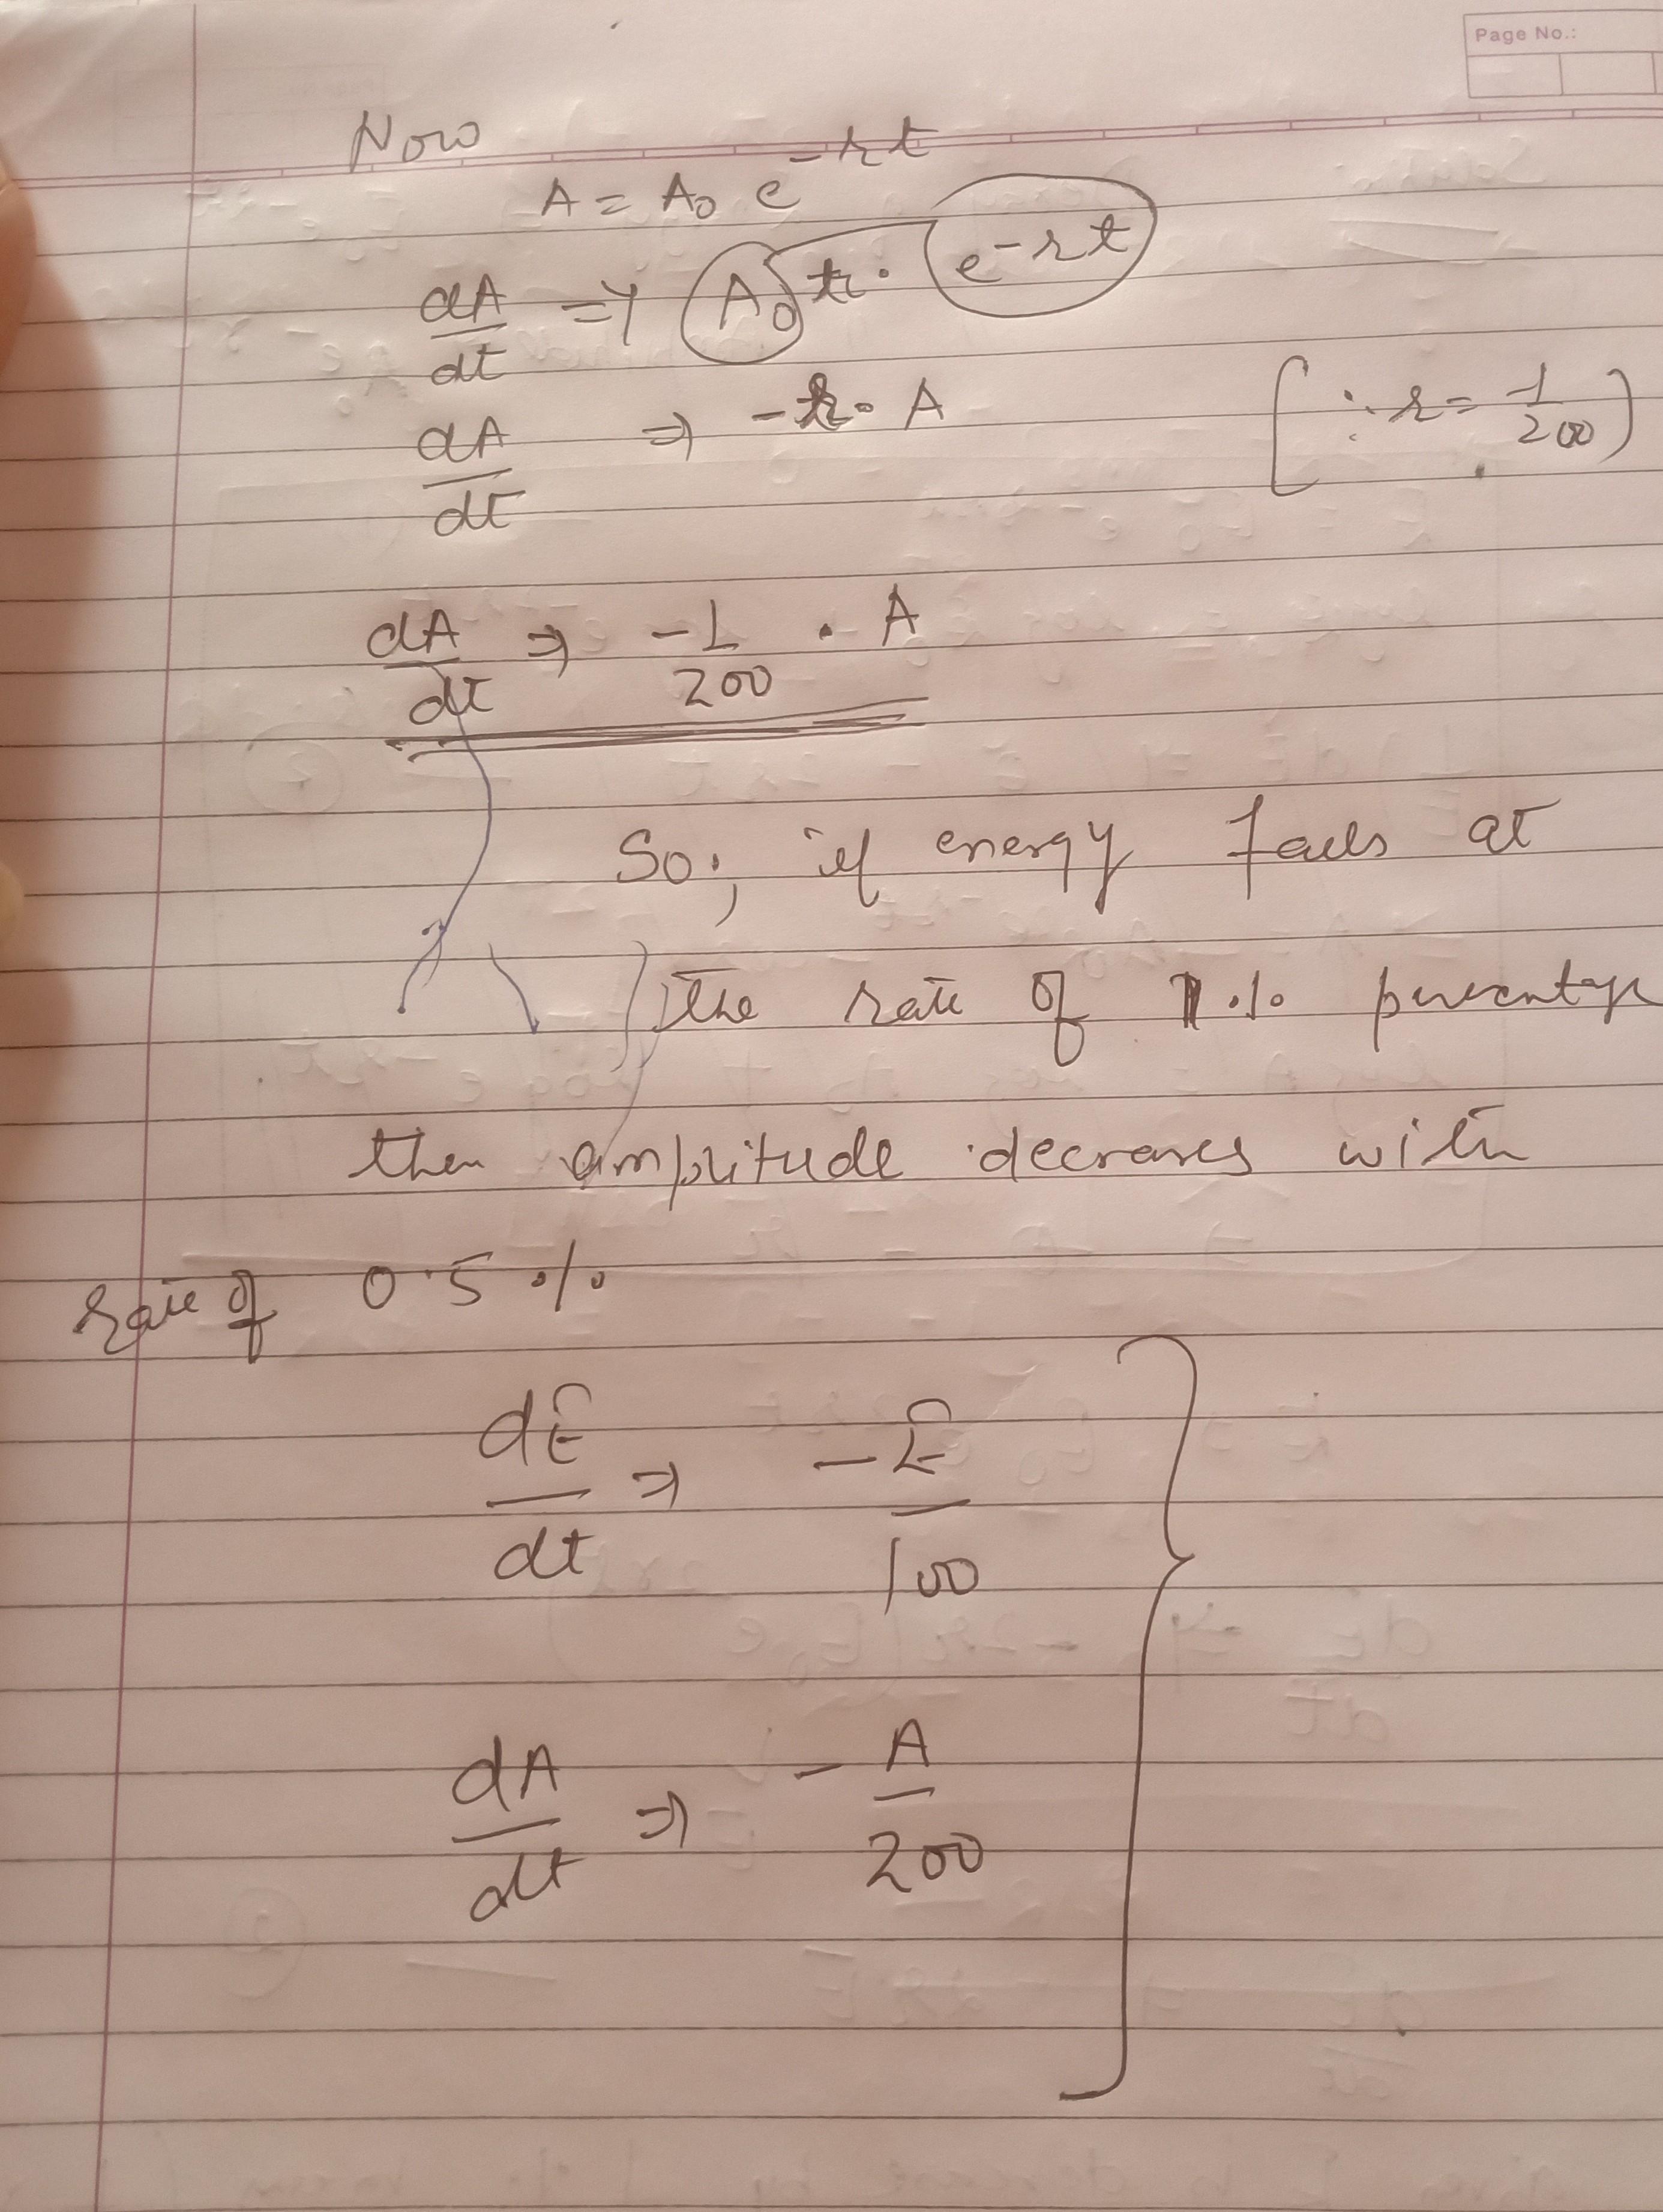 Page No.:
Now
A = A₀ e^-rt
dA/dt => A₀ r · e^-rt
dA/dt => -r · A [∵ r = 1/200)
dA/dt => -1/200 · A
So; if energy falls at
the rate of 1 % percentage
then amplitude decreases with
rate of 0.5 %
dE/dt => -E/100
dA/dt => -A/200